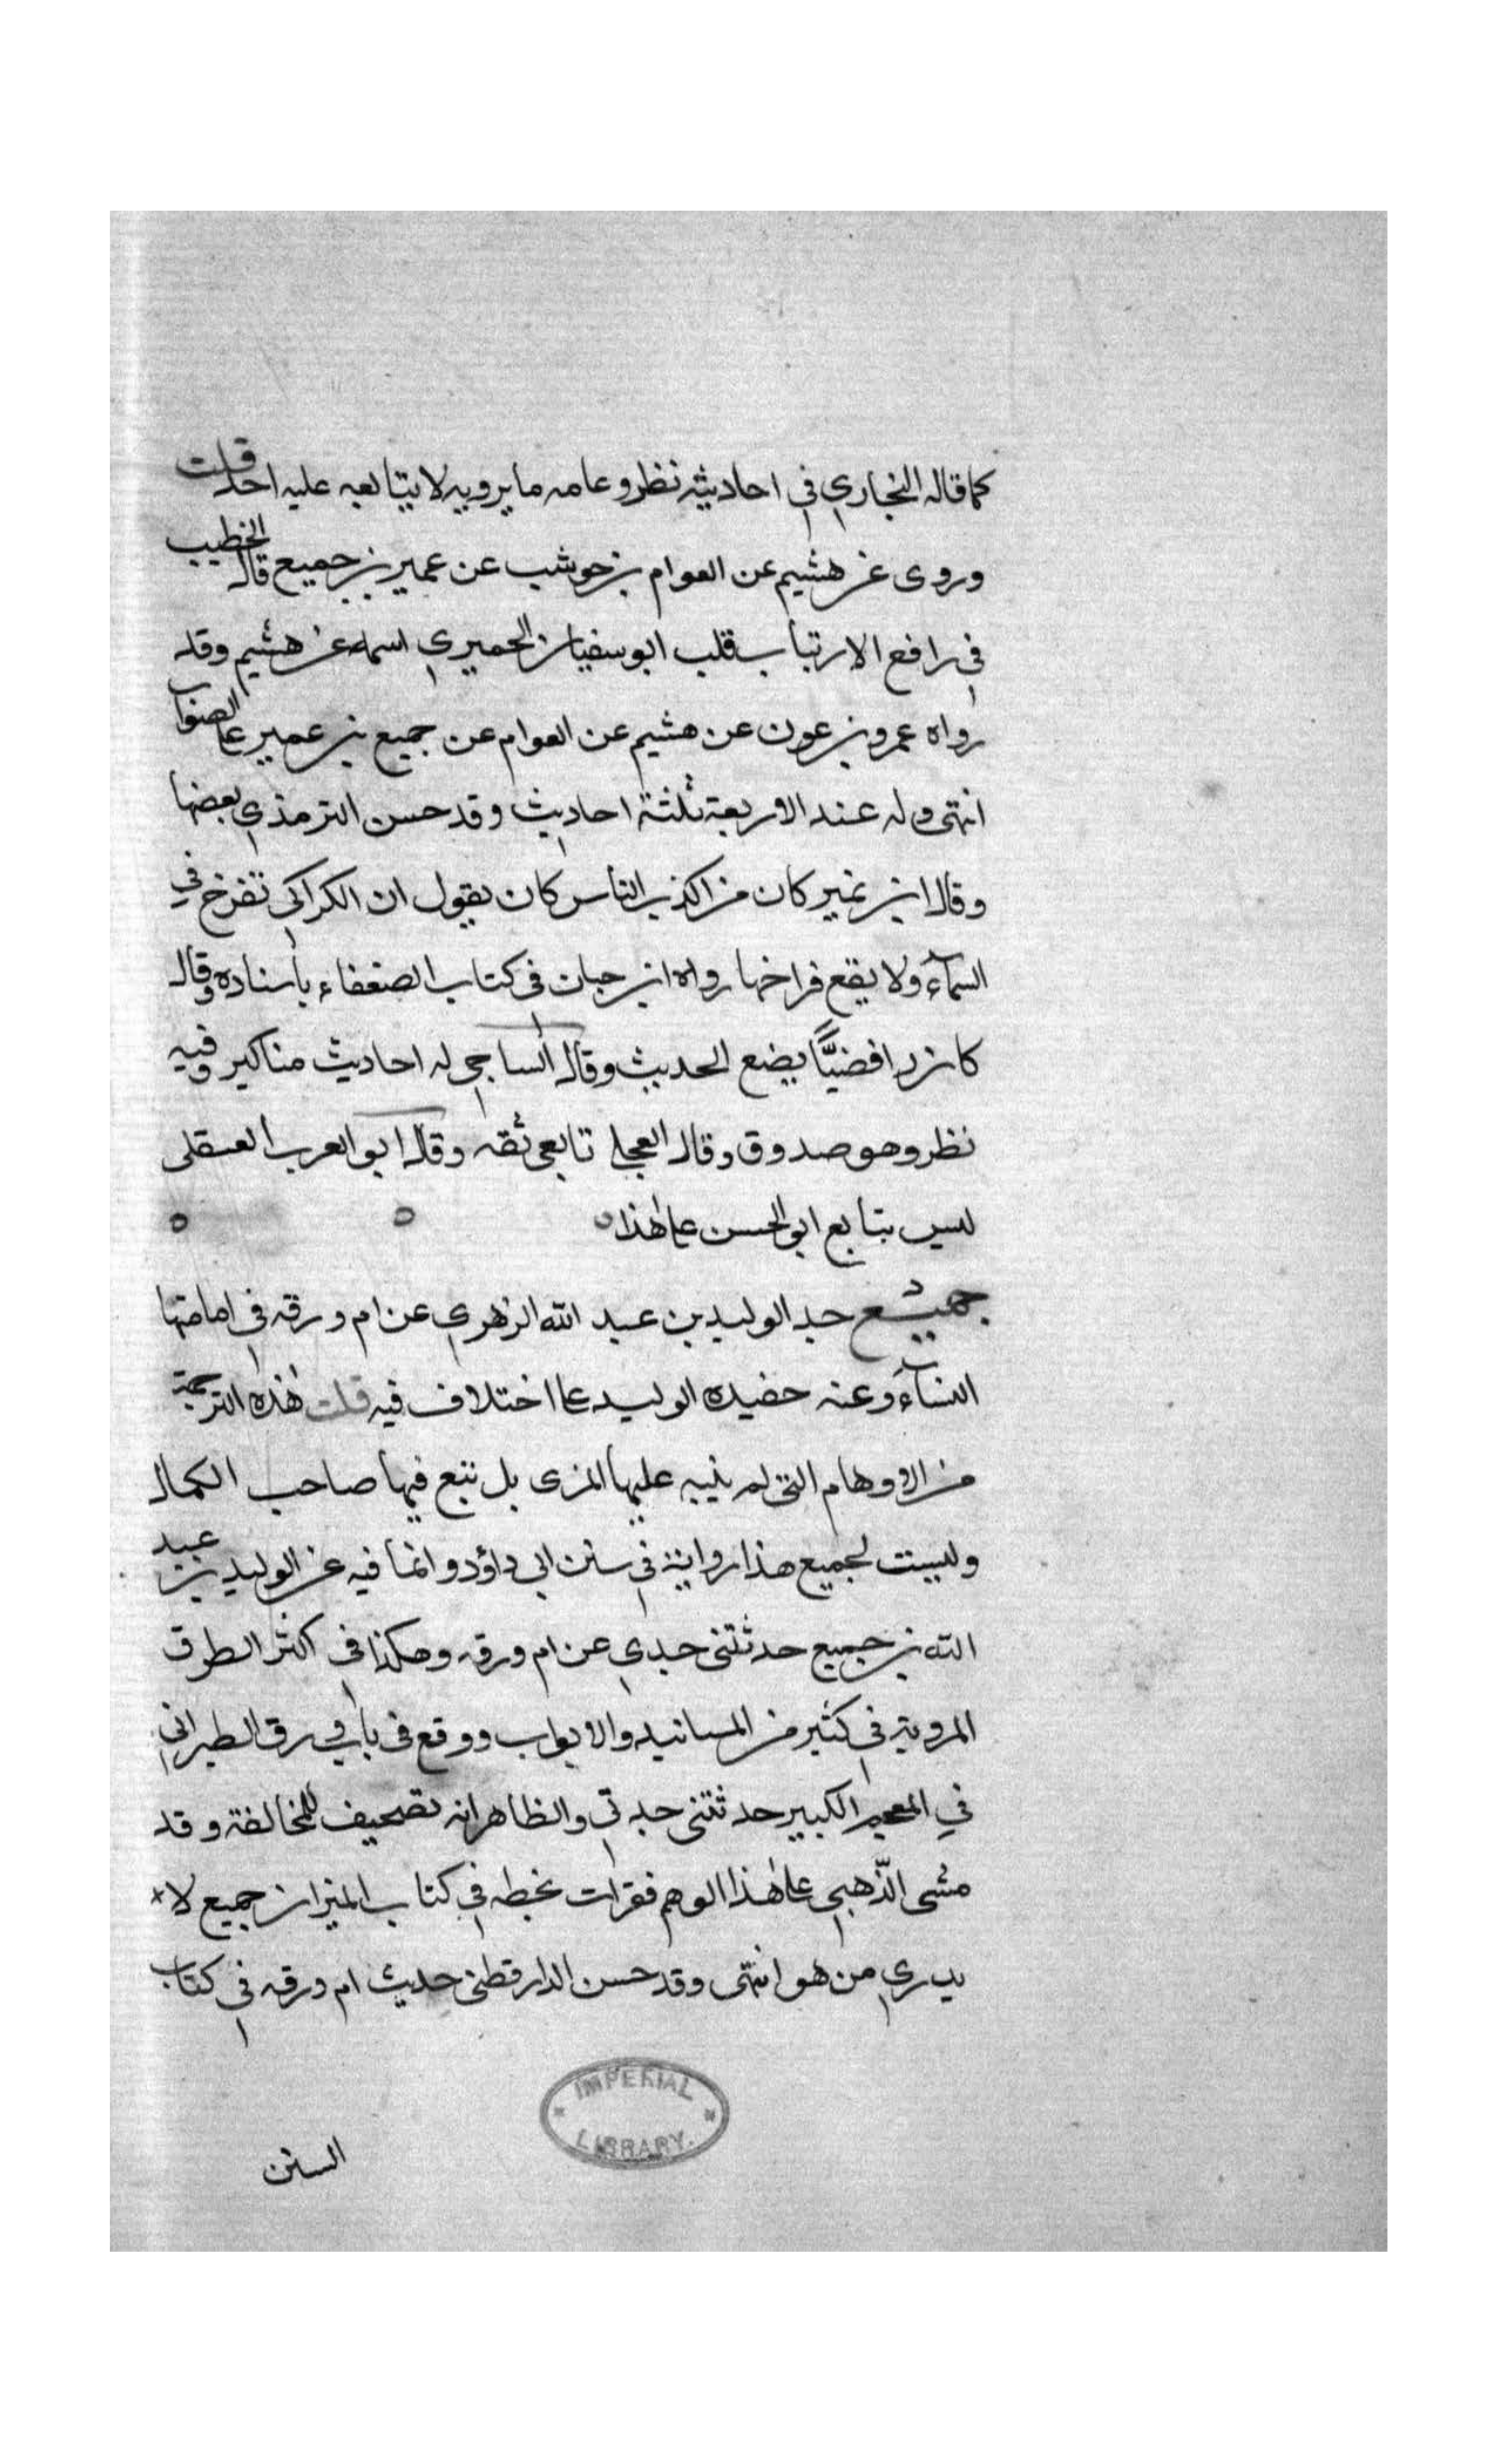 كما قاله البخاري في احاديثه نظر وعامه ما يرويه لا يتابعه عليه احد قلت
وروى عن هشيم عن العوام بن حوشب عن عمير بن جميع قال الخطيب
في رافع الارتياب قلب ابو سفيان الحميري اسمه عن هشيم وقد
رواه عمرو بن عون عن هشيم عن العوام عن جميع بن عمير على الصواب
انتهى وله عند الاربعة ثلثة احاديث وقد حسن الترمذي بعضها
وقال ابن نمير كان من اكذب الناس كان يقول ان الكراكي تفرخ في
السمآء ولا يقع فراخها رواه ابن حبان في كتاب الضعفاء باسناده وقال
كان رافضيًّا يضع الحديث وقال الساجي له احاديث مناكير وفيه
نظر وهو صدوق وقال العجلي تابعي ثقه وقال ابو العرب العسقلى
ليس بتابع ابو الحسن على هذا
جميع جد الوليد بن عبد الله الزهري عن ام ورقه في امامتها
النسآء وعنه حفيده الوليد على اختلاف فيه قلت هذه الترجمة
من الاوهام التي لم ينبه عليها المزى بل تبع فيها صاحب الكمال
وليست لجميع هذا رواية في سنن ابي داؤد وانما فيه عن الوليد بن عبد
الله بن جميع حدثتنى جدي عن ام ورقه وهكذا في اكثر الطرق
المروية في كثير من المسانيد والابواب ووقع في باقي رق الطبراني
في المعجم الكبير حدثتنى جدتي والظاهر انه تصحيف للمخالفة وقد
مشى الذّهبي على هذا الوهم فقرات بخطه في كتاب الميزان جميع لا
يدري من هو انتهى وقد حسن الدارقطنى حديث ام ورقه في كتاب
السنن
IMPERIAL LIBRARY.